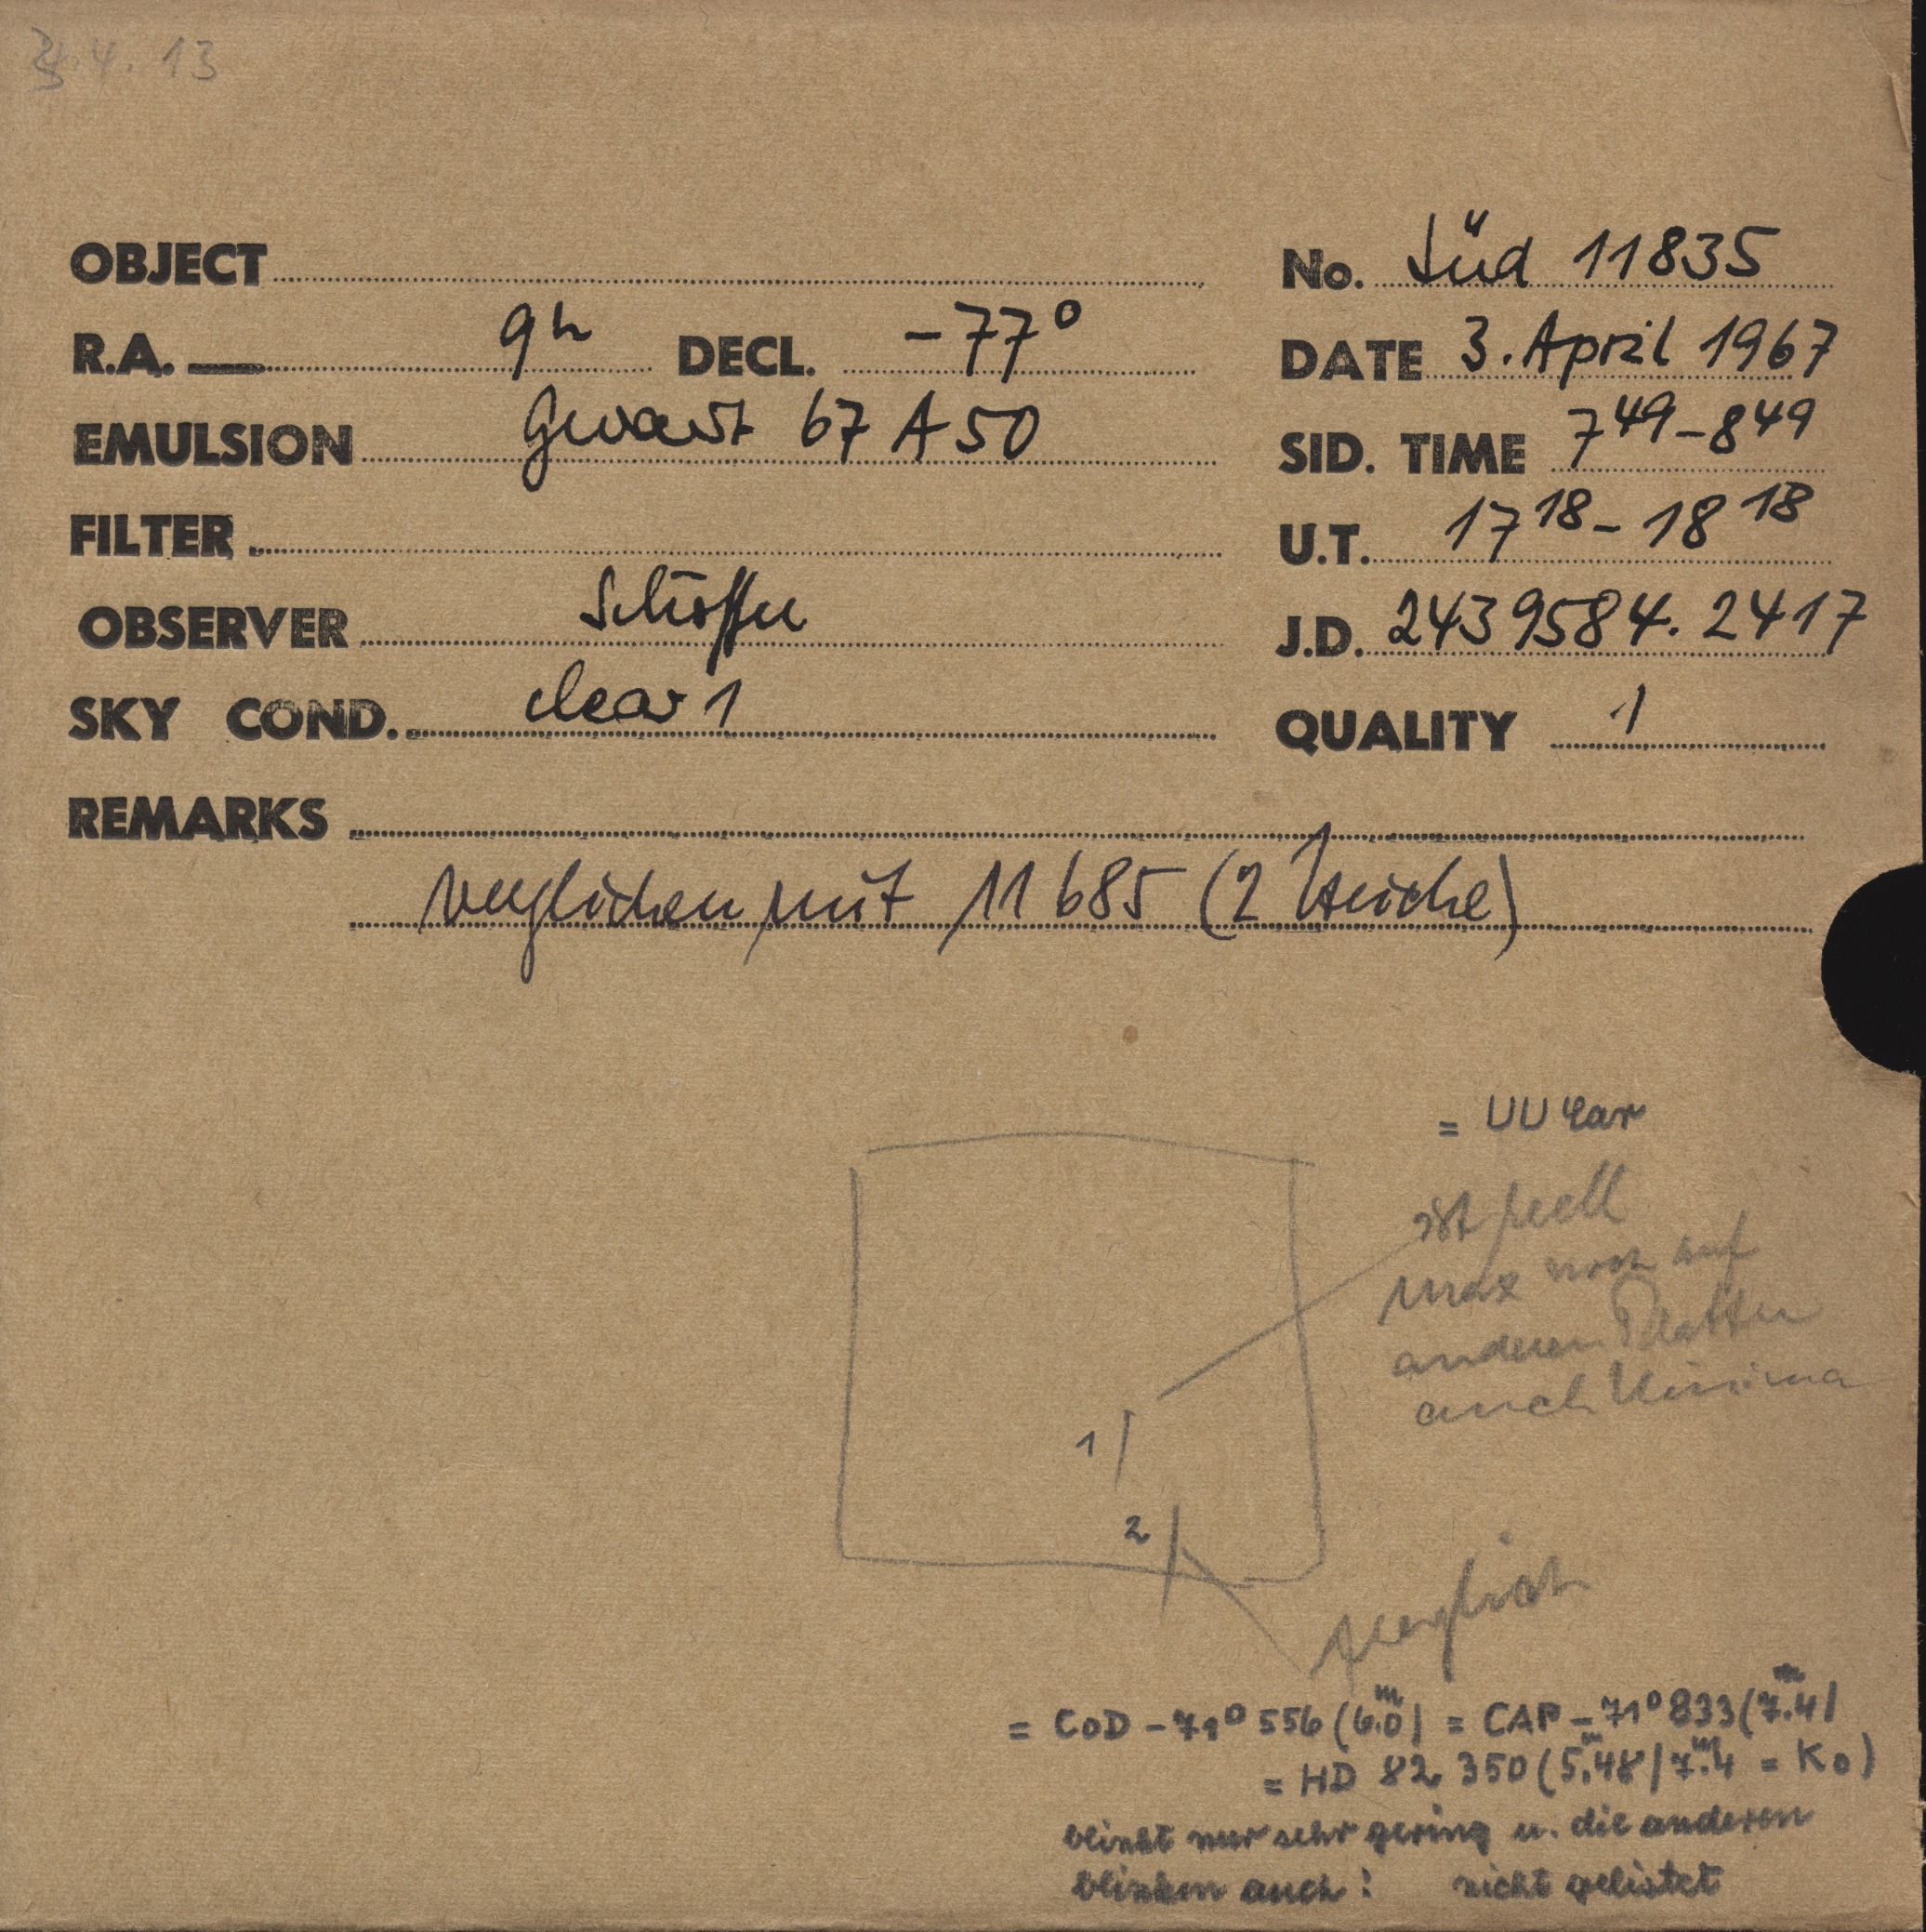 4.13
OBJECT
No. Süd 11835
R.A. 9h DECL. -77°
DATE 3. April 1967
EMULSION Gevaert 67 A 50
SID. TIME 7 49 - 8 49
FILTER
U.T. 17 18 - 18 18
OBSERVER Schöffel
J.D. 2439584.2417
SKY COND. clear 1
QUALITY 1
REMARKS
verglichen mit 11685 (2 Striche)
= UU Car
ist reell
max noch auf
anderen Platten
auch Minima
1
2
fraglich
= CoD -71° 556 (6.0m) = CAP -71° 833 (7.4m)
= HD 82 350 (5.48m / 7.4m = K0)
blinkt nur sehr gering u. die anderen
blinken auch! nicht gelistet